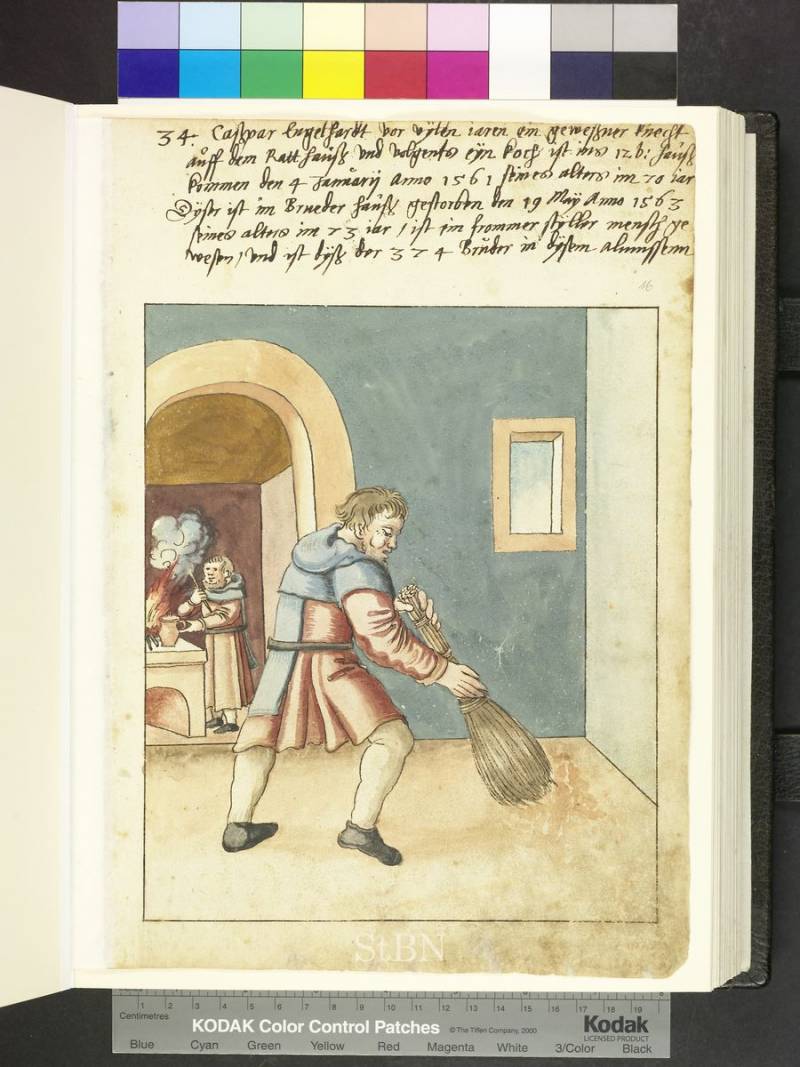 34. Caspar Engelhardt vor vÿlen iaren ein geweßner knecht
auff dem Ratthauß vnd volgents eÿn koch ist ins 12 b: hauß
kommen den 4 Januarÿ Anno 1561 seines alters im 70 iar
Dÿser ist im Brueder hauß gestorben den 19 Maÿ Anno 1563
seines alters im 73 iar / ist ein frommer stÿller mensch ge
wesen / vnd ist dÿß der 374 Brüder in dÿsem alimussenn
16
StBN
1 2 3 4 5 6 7 8 9 10 11 12 13 14 15 16 17 18 19
Centimetres
KODAK Color Control Patches © The Tiffen Company, 2000 Kodak
LICENSED PRODUCT
Blue Cyan Green Yellow Red Magenta White 3/Color Black